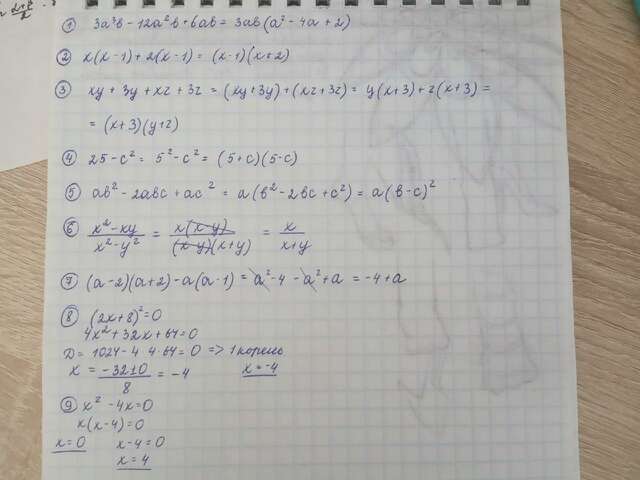 ① 3a³b - 12a²b + 6ab = 3ab(a² - 4a + 2)
② x(x-1) + 2(x-1) = (x-1)(x+2)
③ xy + 3y + xz + 3z = (xy+3y) + (xz+3z) = y(x+3) + z(x+3) =
= (x+3)(y+z)
④ 25 - c² = 5² - c² = (5+c)(5-c)
⑤ ab² - 2abc + ac² = a(b² - 2bc + c²) = a(b-c)²
⑥ (x² - xy)/(x² - y²) = x(x-y)/((x-y)(x+y)) = x/(x+y)
⑦ (a-2)(a+2) - a(a-1) = a² - 4 - a² + a = -4 + a
⑧ (2x+8)² = 0
4x² + 32x + 64 = 0
D = 1024 - 4 · 4 · 64 = 0 => 1 корень
x = (-32±0)/8 = -4 x = -4
⑨ x² - 4x = 0
x(x-4) = 0
x = 0 x - 4 = 0
x = 4